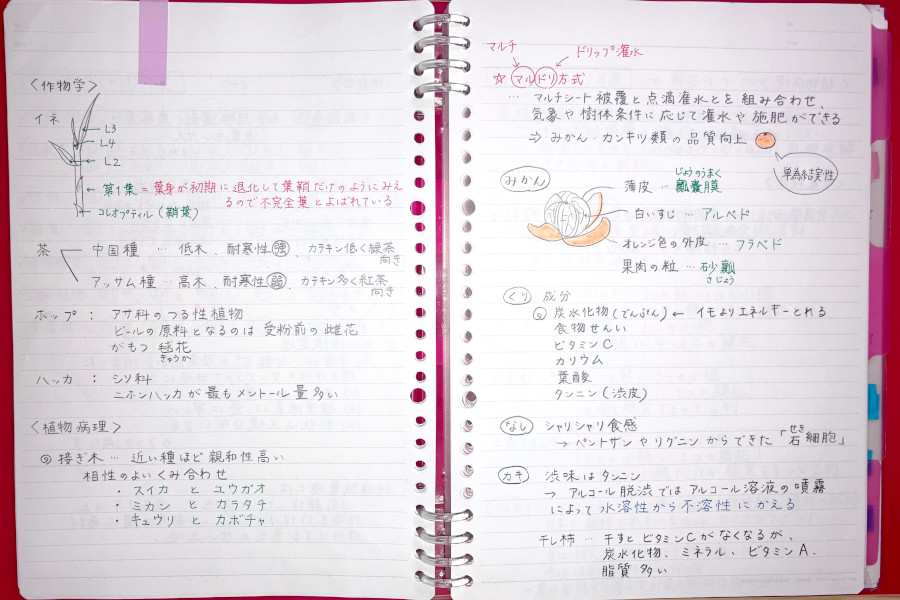 〈作物学〉
イネ
L3
L4
L2
第1葉 = 葉身が初期に退化して葉鞘だけのようにみえ
るので不完全葉とよばれている
コレオプティル(鞘葉)
茶 中国種 … 低木、耐寒性強、カテキン低く緑茶
向き
アッサム種 … 高木、耐寒性弱、カテキン多く紅茶
向き
ホップ : アサ科のつる性植物
ビールの原料となるのは受粉前の雌花
がもつ毬花
きゅうか
ハッカ : シソ科
ニホンハッカが最もメントール量多い
〈植物病理〉
◎ 接ぎ木 … 近い種ほど親和性高い
相性のよいくみ合わせ
・スイカ と ユウガオ
・ミカン と カラタチ
・キュウリ と カボチャ
マルチ ドリップ灌水
☆ マルドリ方式
… マルチシート被覆と点滴灌水とを組み合わせ、
気象や樹体条件に応じて灌水や施肥ができる
⇒ みかん・カンキツ類の品質向上
単為結実性
みかん
じょうのうまく
薄皮 … 瓤嚢膜
白いすじ … アルベド
オレンジ色の外皮 … フラベド
果肉の粒 … 砂瓤
さじょう
くり 成分
◎ 炭水化物(でんぷん) ← イモよりエネルギーとれる
食物せんい
ビタミンC
カリウム
葉酸
タンニン(渋皮)
なし シャリシャリ食感
せき
→ ペントザンやリグニンからできた「石細胞」
カキ 渋味はタンニン
→ アルコール脱渋ではアルコール溶液の噴霧
によって水溶性から不溶性にかえる
干し柿 … 干すとビタミンCがなくなるが、
炭水化物、ミネラル、ビタミンA、
脂質多い